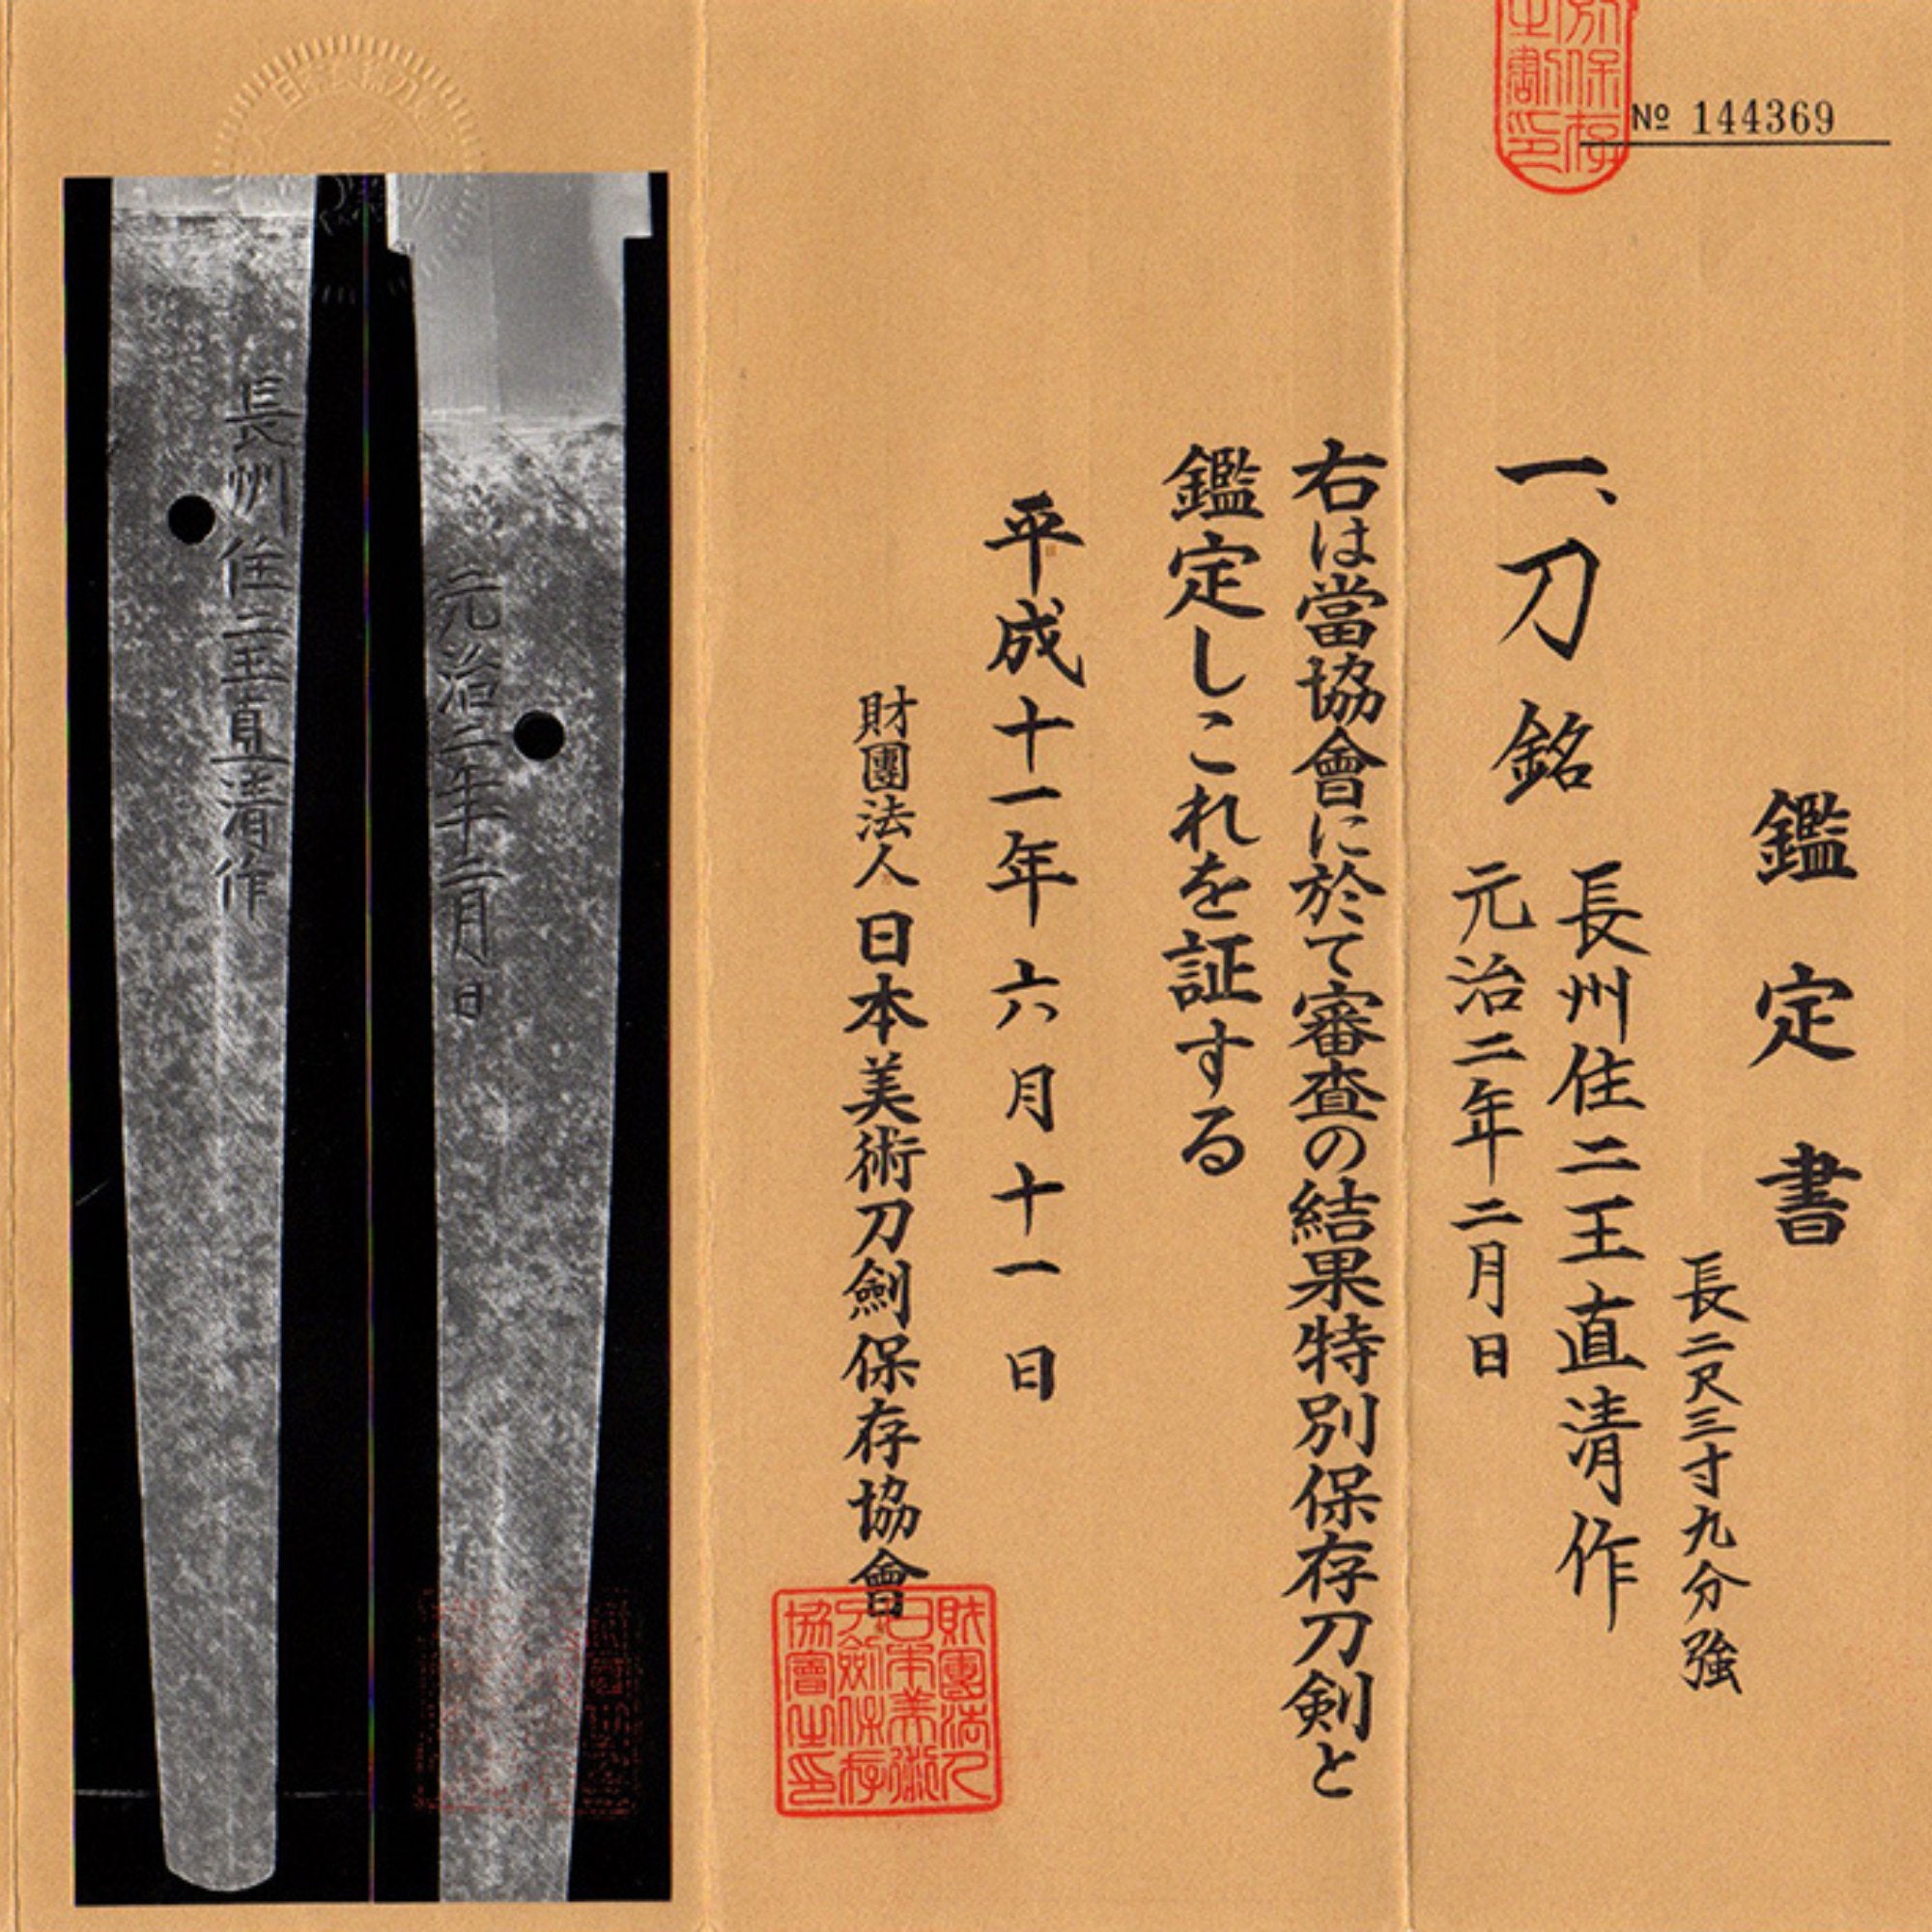 № 144369
鑑定書
長二尺三寸九分強
一、刀 銘 長州住二王直清作
元治二年二月日
右は當協會に於て審査の結果特別保存刀剣と
鑑定しこれを証する
平成十一年六月十一日
財團法人日本美術刀劍保存協會
財團法人
日本美術
刀劍保存
協會之印
元治二年二月日
長州住二王直清作